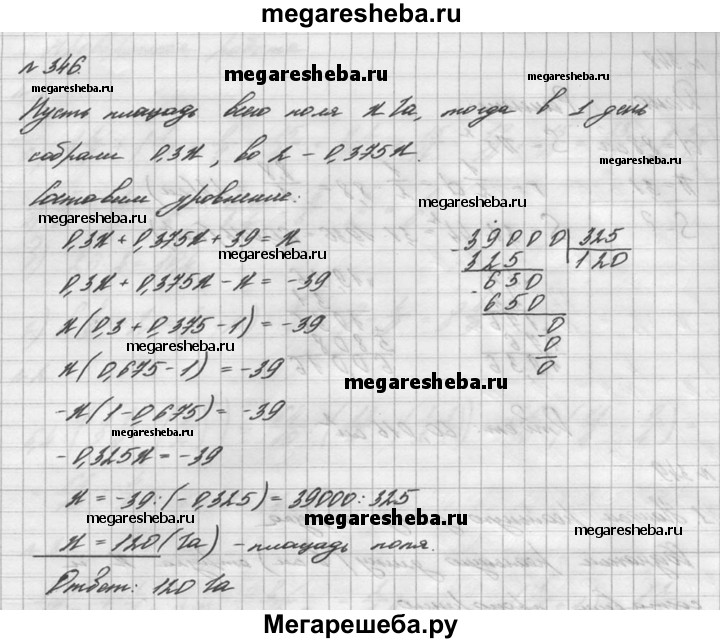 megaresheba.ru
№ 346.
megaresheba.ru megaresheba.ru
Пусть площадь всего поля x га, тогда в 1 день
собрали 0,3x, во 2 – 0,375x.
megaresheba.ru
Составим уравнение:
megaresheba.ru megaresheba.ru
0,3x + 0,375x + 39 = x
0,3x + 0,375x - x = -39
x(0,3 + 0,375 - 1) = -39
megaresheba.ru
x(0,675 - 1) = -39
-x(1 - 0,675) = -39
megaresheba.ru
-0,325x = -39
x = -39 : (-0,325) = 39000 : 325
megaresheba.ru megaresheba.ru
x = 120 (га) – площадь поля.
Ответ: 120 га
39000 325
325 120
650
650
0
0
0
megaresheba.ru
megaresheba.ru
megaresheba.ru
Мегарешеба.ру